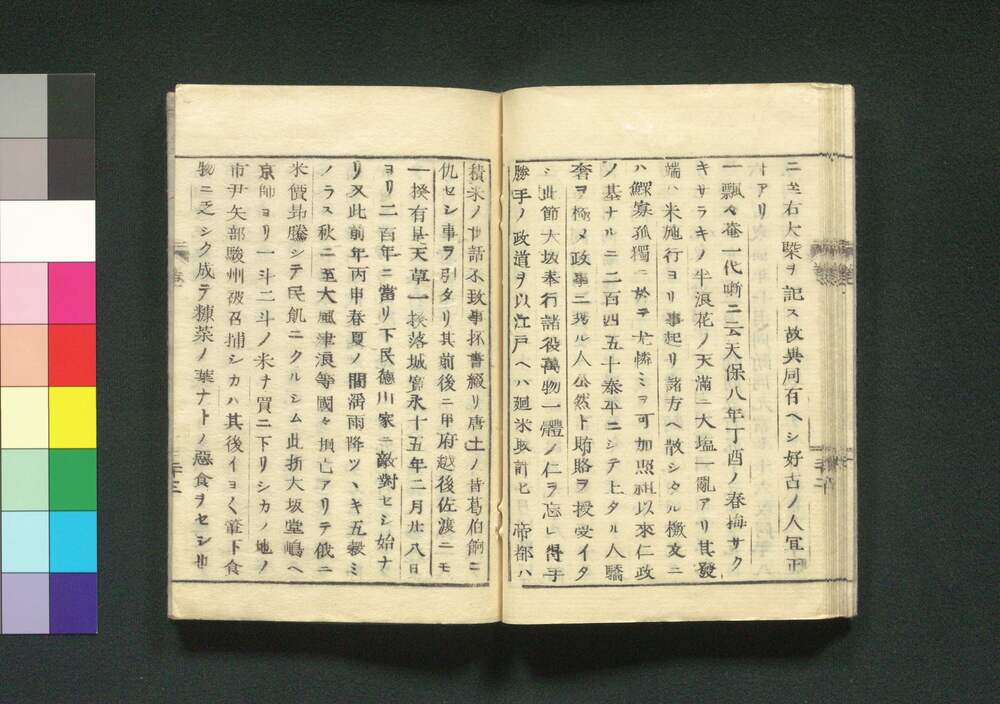 ニ至右大槩ヲ記ス故典同有ヘシ好古ノ人冝正
トアリ
一飄々菴一代噺ニ云天保八年丁酉ノ春梅サク
キサラキノ半浪花ノ天滿ニ大塩一亂アリ其發
端ハ米施行ヨリ事起リ諸方ヘ散シタル檄文ニ
ハ鰥寡孤獨ニ於テ尤憐ミヲ可加照祖以來仁政
ノ基ナルニ二百四五十泰平ニシテ上タル人驕
奢ヲ極メ政事ニ現ル人公然ト賄賂ヲ授受イタ
シ此節大坂奉行諸役萬物一體ノ仁ヲ忘レ得手
勝手ノ政道ヲ以江戸ヘハ廻米取計ヒ帝都ハ
積米ノ世話不致事抔書綴リ唐土ノ昔葛伯餉ニ
仇セシ事ヲ引タリ其前後ニ甲府越後佐渡ニモ
一揆有是天草一揆落城寛永十五年二月廿八日
ヨリ二百年ニ當リ下民德川家ニ敵對セシ始ナ
リ又此前年丙申春夏ノ間霪雨降ツヽキ五穀ミ
ノラス秋ニ至大風津浪等國々損亡アリテ俄ニ
米價昻騰シテ民飢ニクルシム此折大坂堂嶋ヘ
京師ヨリ一斗二斗ノ米ナ買ニ下リシカノ地ノ
市尹矢部駿州被召捕シカハ其後イヨ〱箪下食
物ニ乏シク成テ糠菜ノ葉ナトノ惡食ヲセシ也